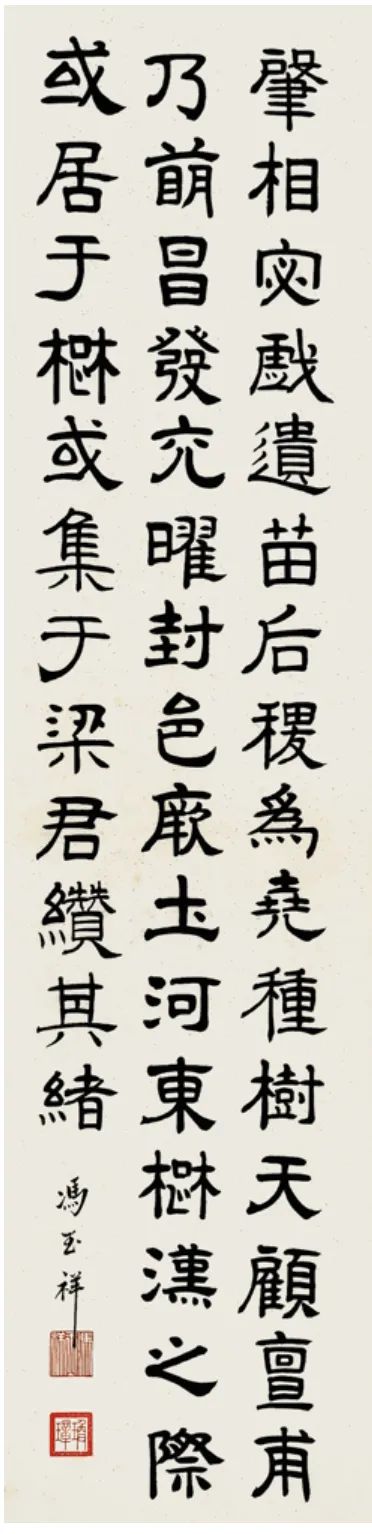 肇相宓戲遺苗后稷爲堯種樹天顧亶甫
乃萌昌發充曜封邑厥土河東楚漢之際
或居于楚或集于梁君纘其緒
馮玉祥